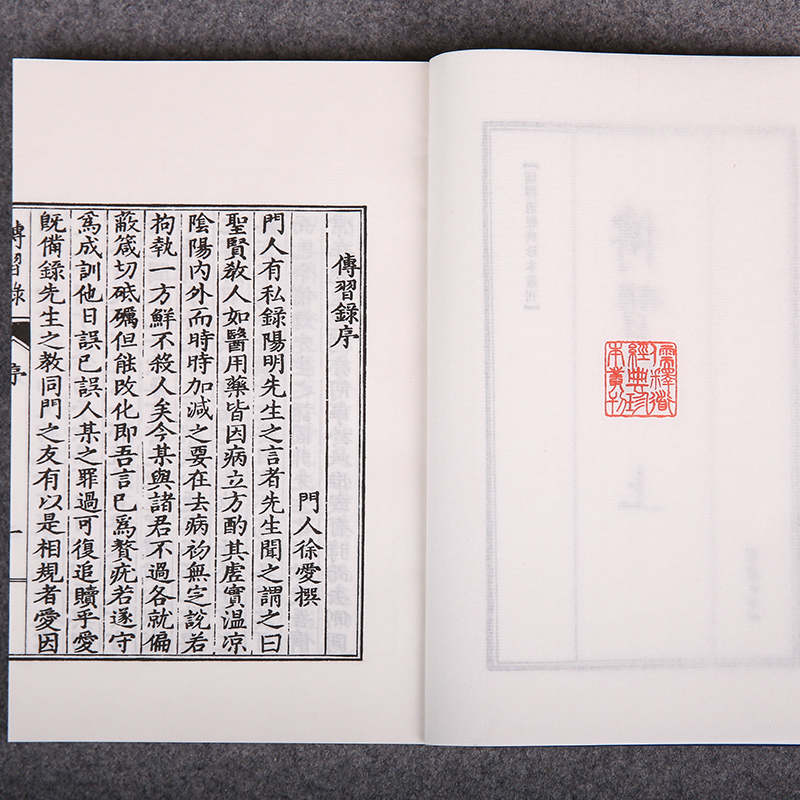 傳習錄序
門人徐愛撰
門人有私錄陽明先生之言者先生聞之謂之曰
聖賢教人如醫用藥皆因病立方酌其虛實温凉
陰陽内外而時時加減之要在去病初無定說若
拘執一方鮮不殺人矣今某與諸君不過各就偏
蔽箴切砥礪但能改化即吾言已爲贅疣若遂守
爲成訓他日誤已誤人某之罪過可復追贖乎愛
旣備錄先生之教同門之友有以是相規者愛因
傳習錄
序
一
儒釋道
經典珍
本叢刊
上